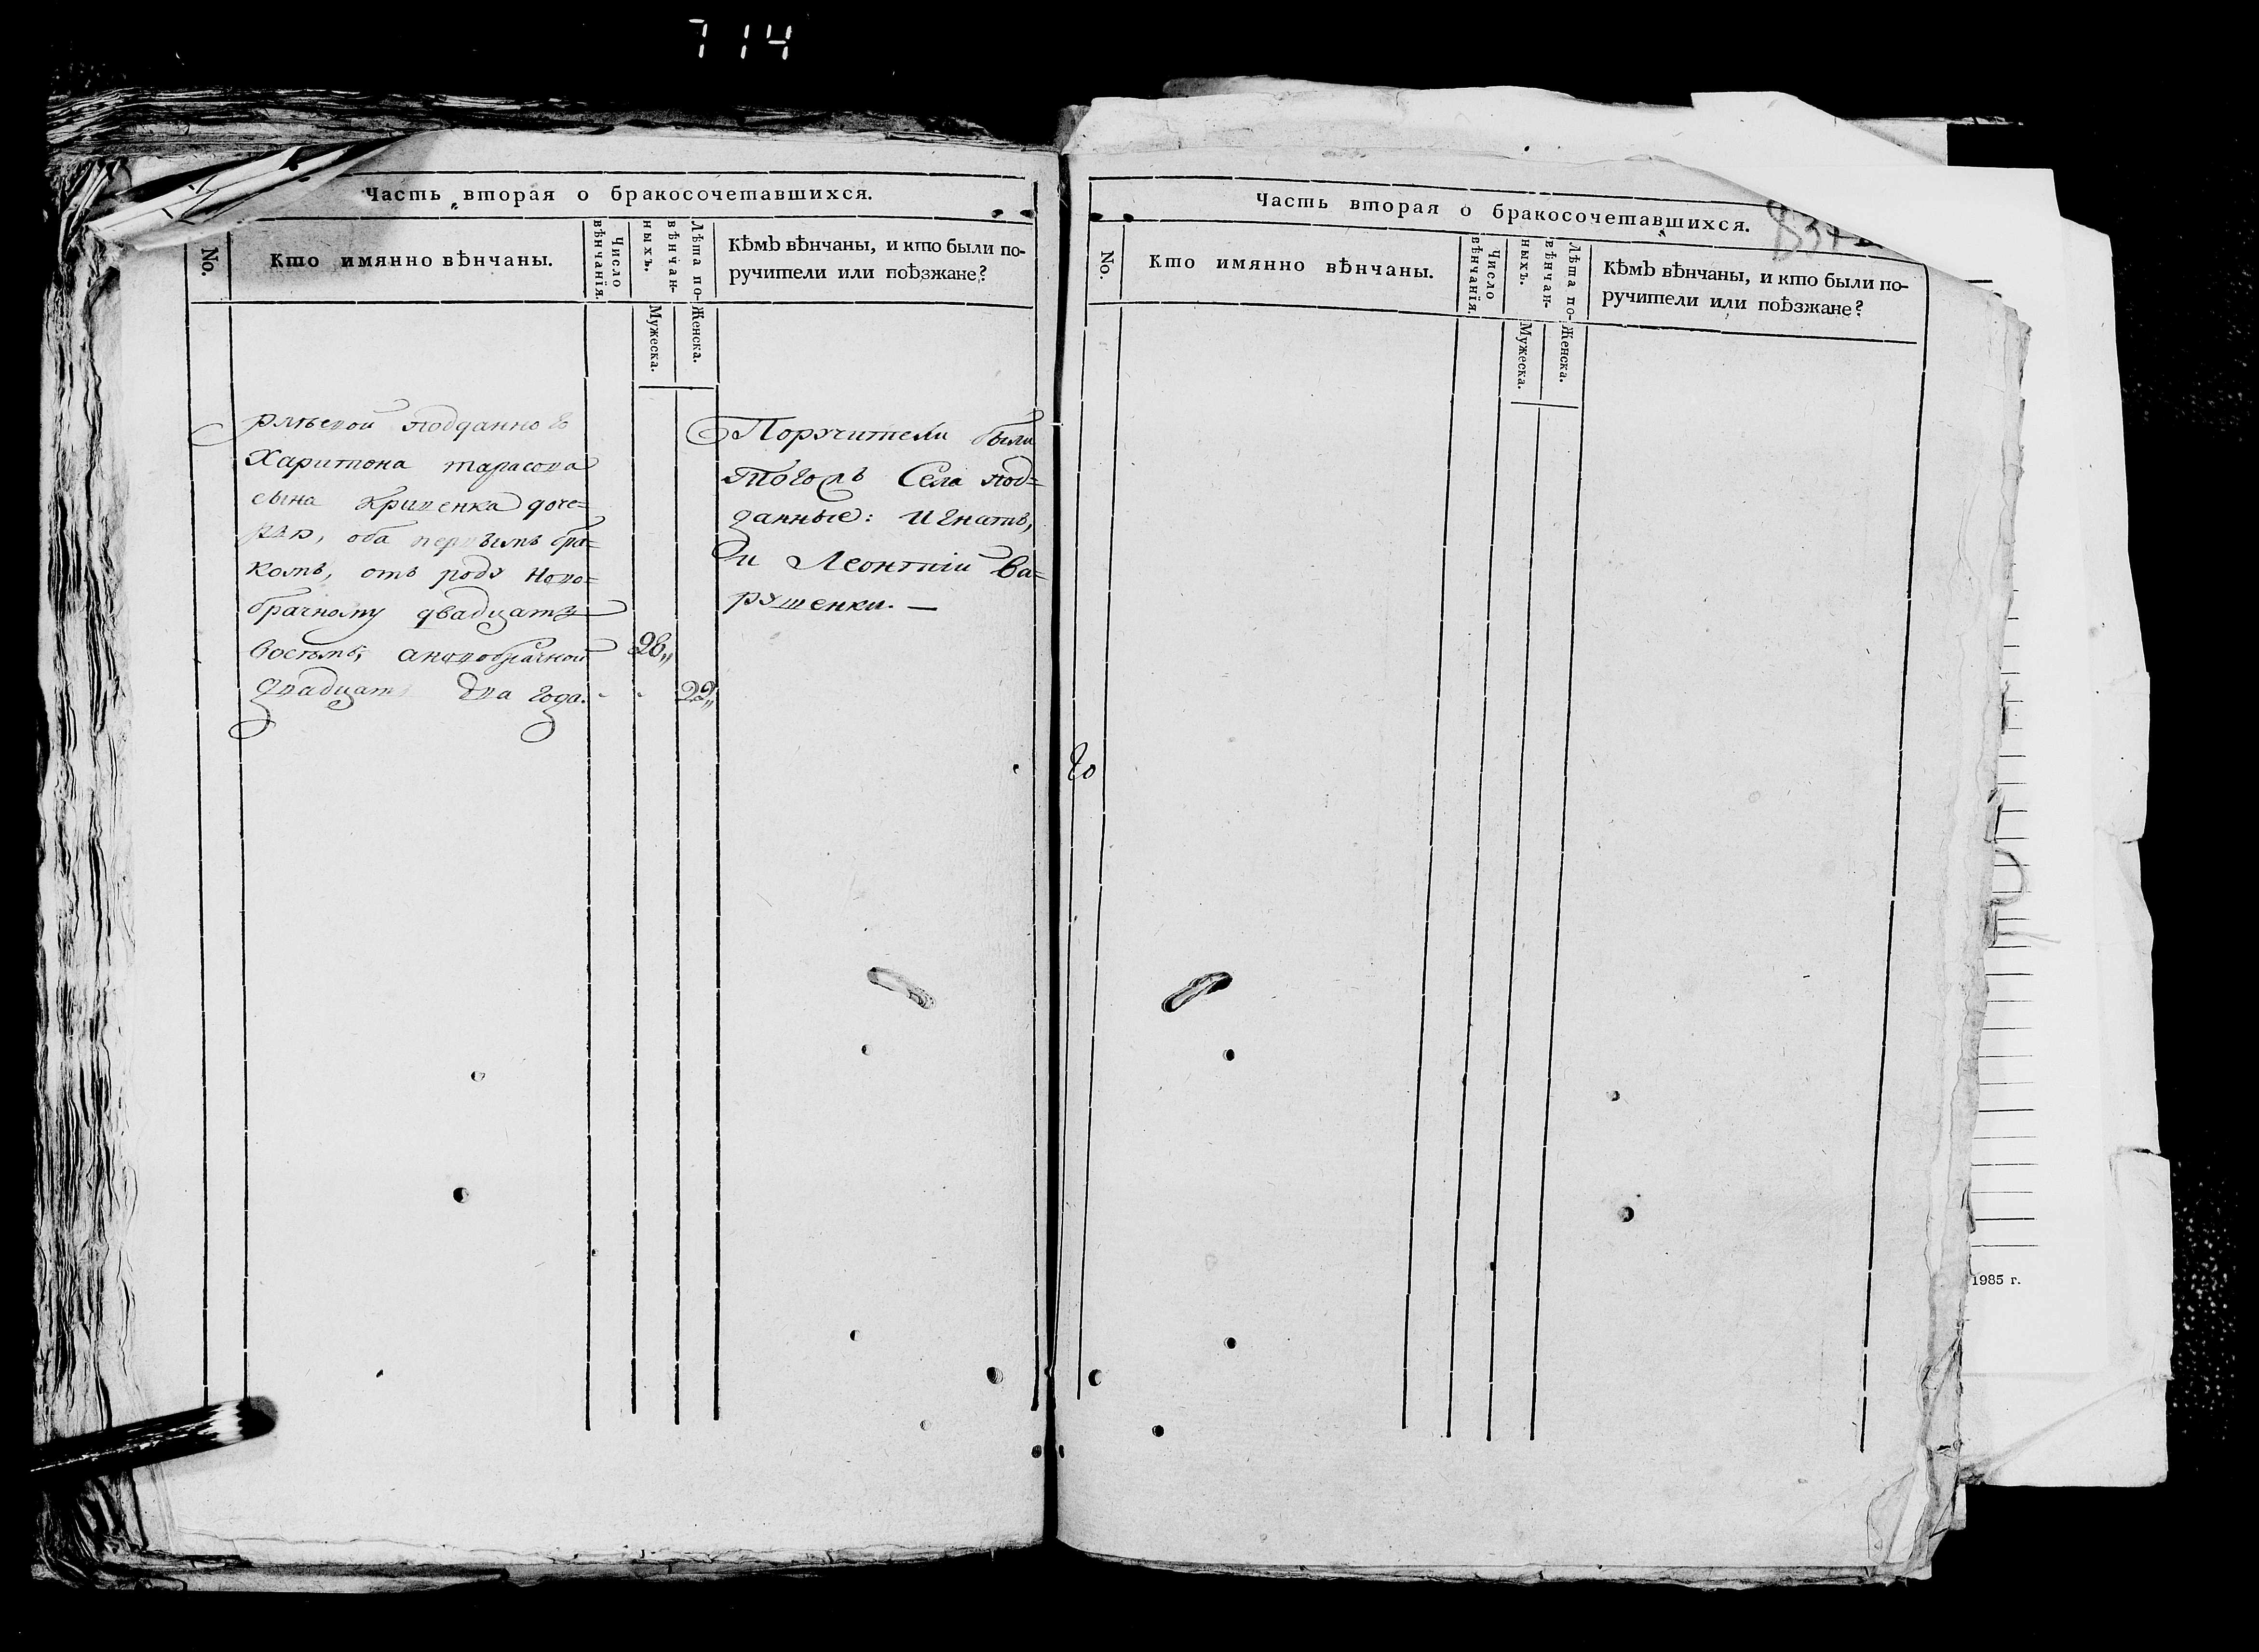 714
Часть вторая о бракосочетавшихся.
No.
Кто имянно вѣнчаны.
Число вѣнчанїя.
Лѣта повѣнчанныхъ.
Мужеска.
Женска.
Кѣмъ вѣнчаны, и кто были по-
ручители или поѣзжане?
подданного
Харитона тарасова
сына Кривенка доче-
рью, оба первымъ бра-
комъ, отъ роду ново-
брачному двадцать
восемь, а новобрачной
двадцать два года.
28
22
Поручители были
тогожъ Села под-
данные: Игнатъ,
и Леонтий Ва-
рушенки. —
Часть вторая о бракосочетавшихся.
No.
Кто имянно вѣнчаны.
Число вѣнчанїя
Лѣта повѣнчанныхъ.
Мужеска.
Женска.
Кѣмъ вѣнчаны, и кто были по-
ручители или поѣзжане?
го
1985 г.